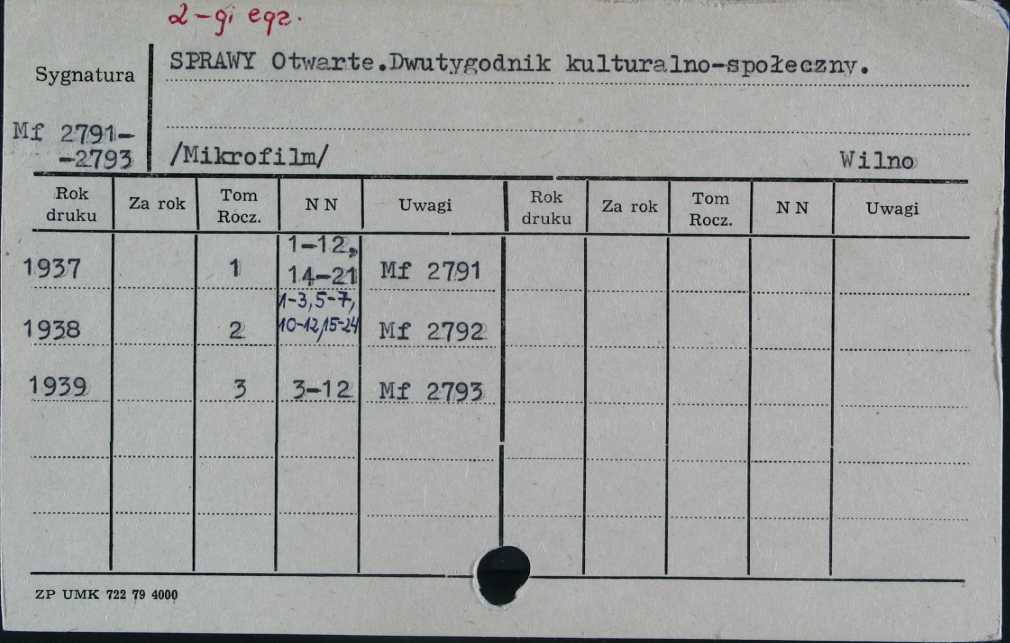 2-gi egz.
SPRAWY Otwarte.Dwutygodnik kulturalno-społeczny.
Sygnatura
Mf 2791-
-2793
/Mikrofilm/ Wilno
Rok druku Za rok Tom Rocz. N N Uwagi Rok druku Za rok Tom Rocz. N N Uwagi
1937 1 1-12, 14-21 Mf 2791
1938 2 1-3, 5-7, 10-12, 15-24 Mf 2792
1939 3 3-12 Mf 2793
ZP UMK 722 79 4000